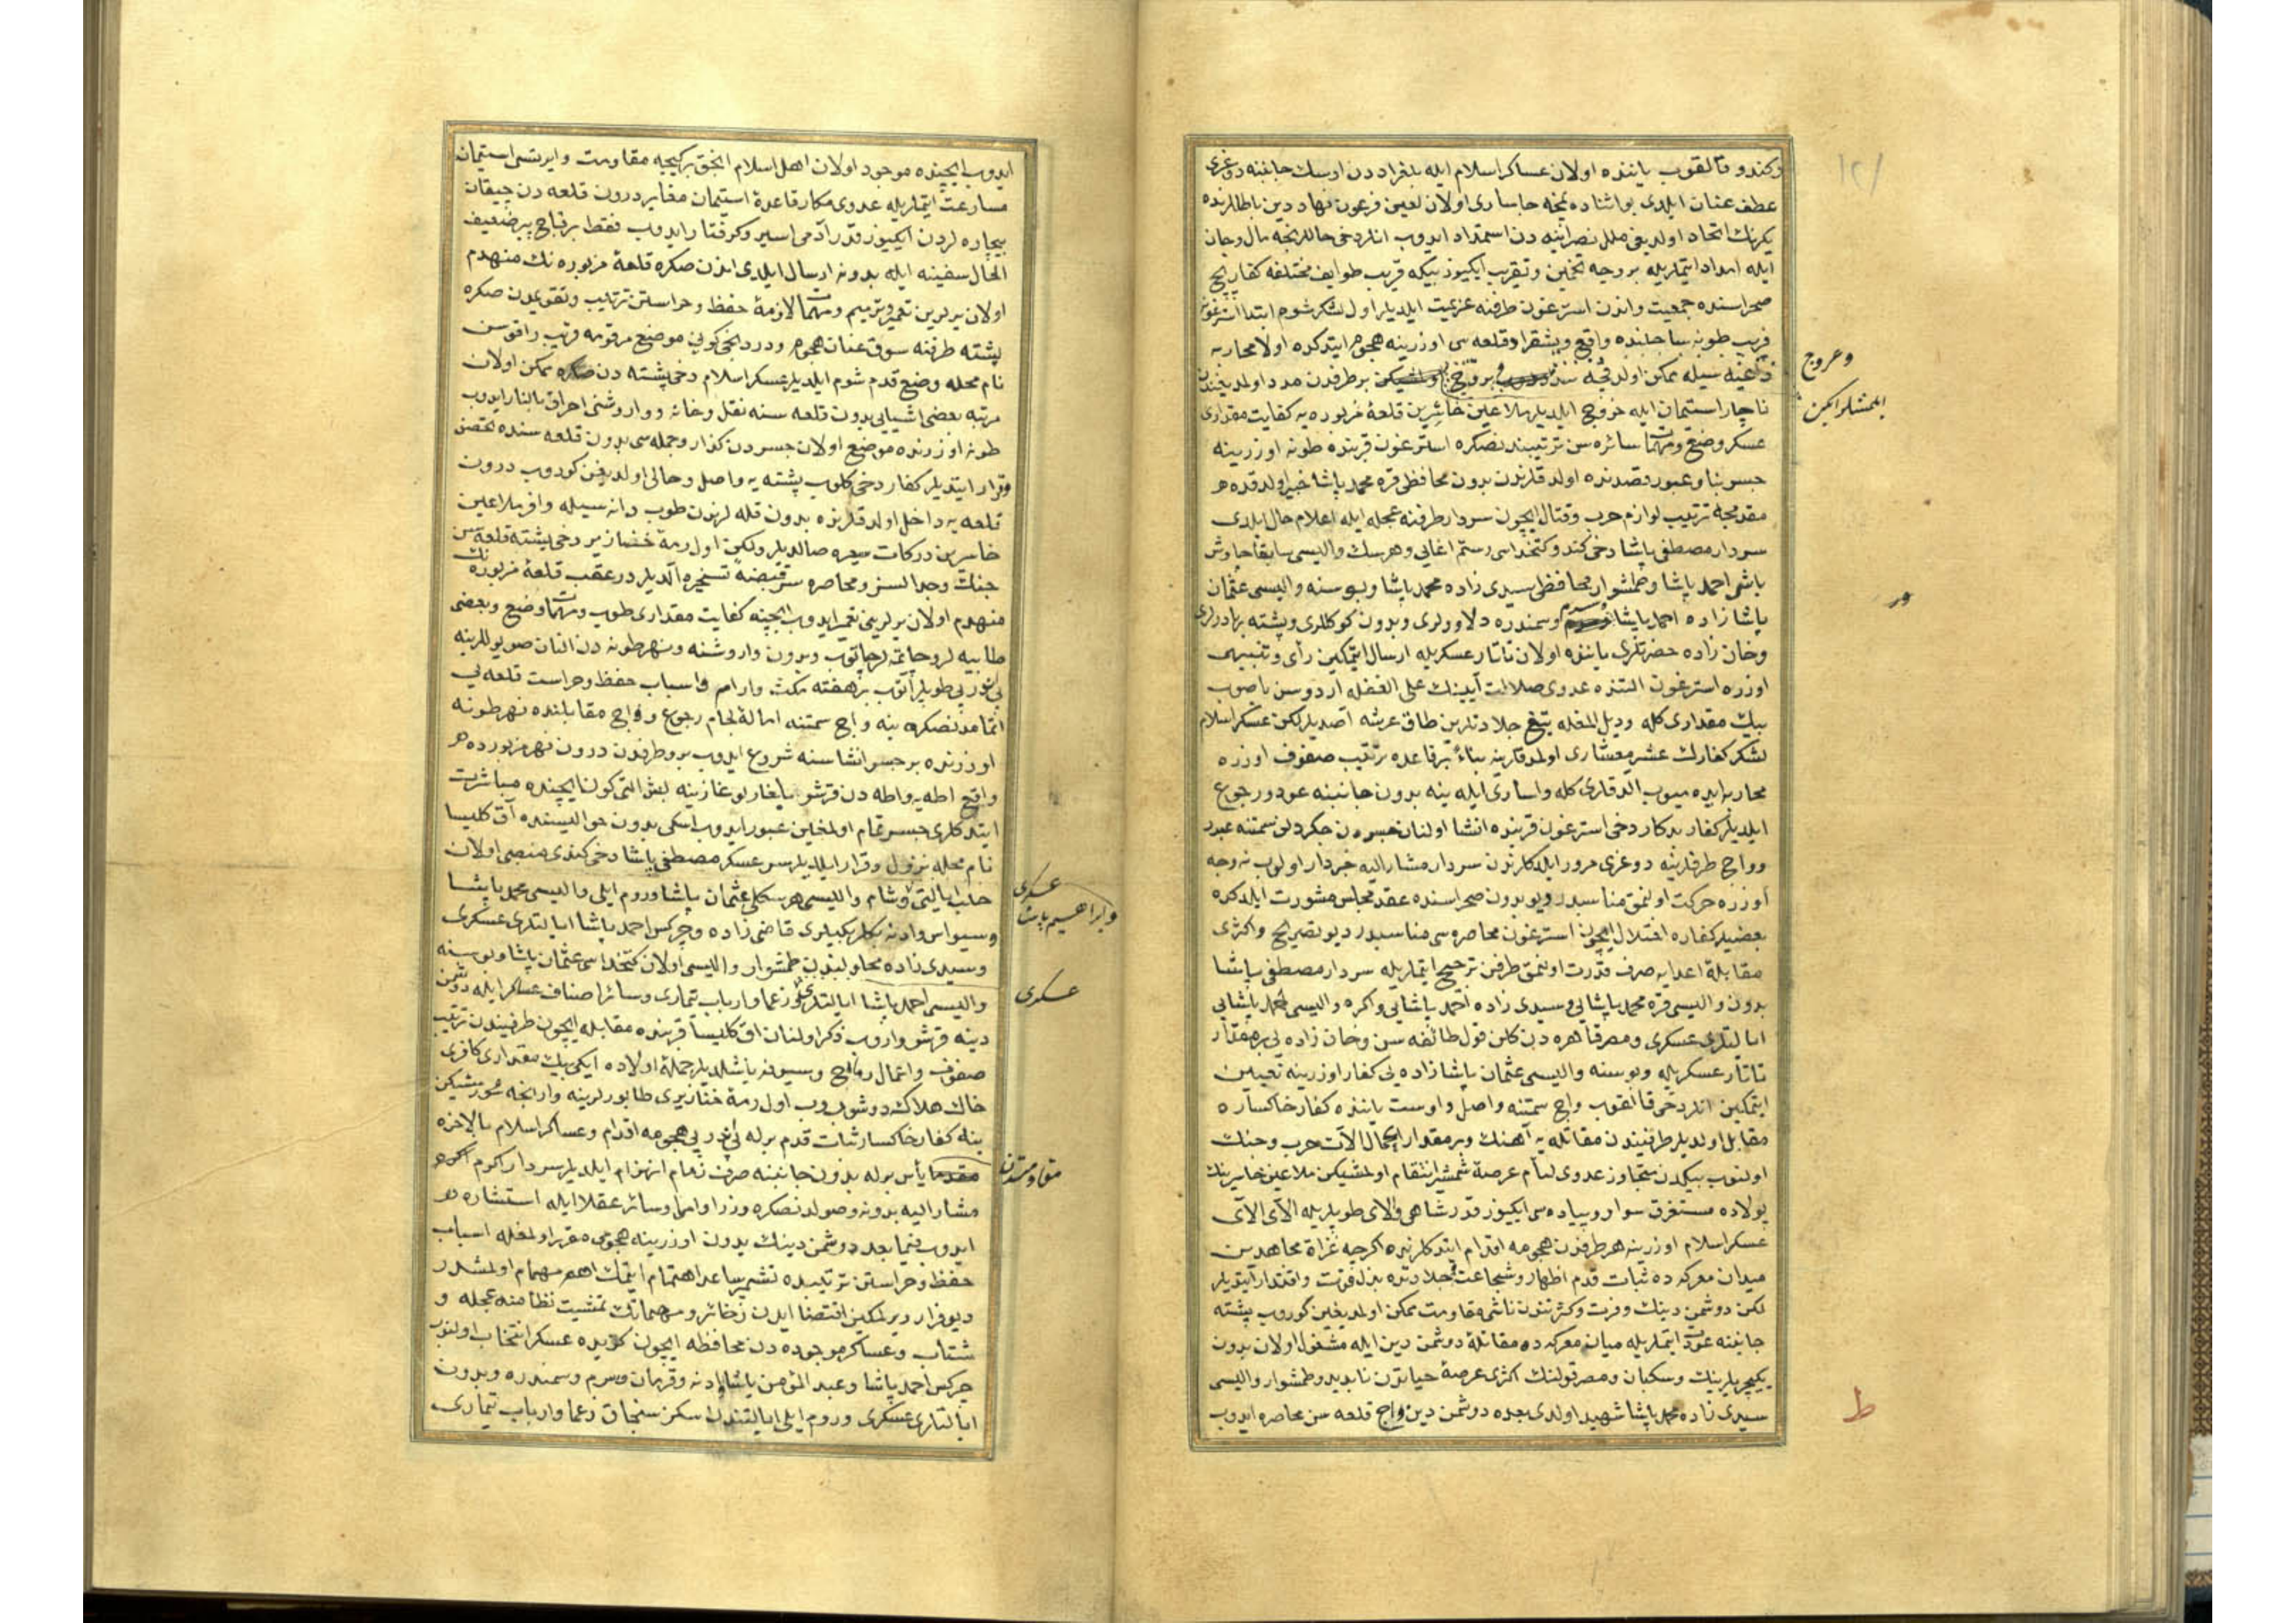 وكندو قالقوب یاننده اولان عساكر اسلام ایله بلغراددن اوسك جانبنه دوغری
عطف عنان ایلدی بو اثناده نمچه جاساری اولان لعین فرعون نهاد دین باطللرنده
یكرنك اتحاد اولدیغی ملل نصرانیه دن استمداد ایدوب انلر دخی حاللرنجه مال و جان
ایله امداد ایتملریله بر وجه تخمین و تقریب ایكیوز بیكه قریب طوایف مختلفه كفار پچ
صحراسنده جمعیت و اندن استرغون طرفنه عزیمت ایلدیلر اول لشكر شوم ابتدا استرغون
قربب طونه ساحلنده واقع ویشغراد قلعه سی اوزرینه هجوم ایتدكده اولا محاربه
سیله ممكن اولدقچه بر طرفدن مدد اولمدیغندن
وعروج
ایلمشلر ایكن
ناچار استیمان ایله خروج ایلدیلر ملاعین خائبین قلعۀ مزبوره یه كفایت مقداری
عسكر وضع و مهمات سائره سن ترتیبندنصكره استرغون قربنده طونه اوزرینه
جسر بنا و عبور قصدنده اولدقلرندن بدون محافظی قره محمد پاشا خبیر اولدقده
مقدمجه ترتیب لوازم حرب و قتال ایچون سردار طرفنه عجله ایله اعلام حال ایلدی
سردار مصطفی پاشا دخی كندو كتخداسی رستم اغایی و هرسك والیسی سابقا چاوش
باشی احمد پاشا و طمشوار محافظی سیدی زاده محمد پاشا و بوسنه والیسی عثمان
پاشا زاده احمد پاشا و سمندره دلاورلری و بدون كوكللری و پشته بهادرلری
و خان زاده حضرتلری یاننده اولان تاتار عسكریله ارسال ایتمكین رأی و تنبیهی
اوزره استرغون التنده عدوی ضلالت آیینك علی الغفله اردوسن باصوب
بیك مقداری كله و دیل المغله تیغ جلادتلرین طاق عرشه اصدیلر لكن عسكر اسلام
لشكر كفارك عشر معشاری اولمدقلرینه بناءً بر قاعده ترتیب صفوف اوزره
محاربه ایده میوب الدقلری كله و اساری ایله ینه بدون جانبنه عود و رجوع
ایلدیلر كفار بدكار دخی استرغون قربنده انشا اولنان جسردن جكردلن سمتنه عبور
و واج طرفلرینه دوغری مرور ایلدكلرندن سردار مشار الیه خبردار اولوب نه وجه
اوزره حركت اولنمق مناسبدر دیو بدون صحراسنده عقد مجلس مشورت ایلدكده
بعضیلر كفاره اختلال ایچون استرغون محاصره سی مناسبدر دیو تصریح و اكثری
مقابلۀ اعدایه صرف قدرت اولنمق طرفن ترجیح ایتملریله سردار مصطفی پاشا
بدون والیسی قره محمد پاشایی و سیدی زاده احمد پاشایی و اكره والیسی احمد پاشایی
ایالتلری عسكری و مصر قاهره دن كلن قول طائفه سن و خان زاده یی بر مقدار
تاتار عسكریله و بوسنه والیسی عثمان پاشا زاده یی كفار اوزرینه تعیین
ایتمكین انلر دخی قالقوب واج سمتنه واصل و اوست یاننده كفار خاكساره
مقابل اولدیلر طرفیندن مقاتله یه آهنك و بر مقدار اعمال آلات حرب و جنك
اولنوب بیكدن متجاوز عدوی لئام عرصۀ شمشیر انتقام اولمشیكن ملاعین خاسرینك
پولاده مستغرق سوار و پیاده سی ایكیوز قدر شاهی و الای طوپلریله الای الای
عسكر اسلام اوزرینه هر طرفدن هجومه اقدام ایتدكلرنده اكرچه غزاة مجاهدین
میدان معركه ده ثبات قدم اظهار و شجاعت و جلادتده بذل قوت و اقتدار ایتدیلر
لكن دوشمن دینك وفرت و كثرتندن ناشی مقاومت ممكن اولمدیغین كوروب پشته
جانبنه عودت ایتملریله میان معركه ده مقاتلۀ دوشمن دین ایله مشغول اولان بدون
یكیچریلرینك و سكبان و مصر قولینك اكثری عرصۀ حیاتدن نابدید و طمشوار والیسی
سیدی زاده محمد پاشا شهید اولدی بعده دوشمن دین واج قلعه سن محاصره ایدوب
ایدوب ایچنده موجود اولان اهل اسلام انجق بر كیجه مقاومت و ایرتسی استیمان
مسارعت ایتملریله عدوی مكار قاعدۀ استیمان مغایر درون قلعه دن چیقان
بیچاره لردن ایكیوز قدر آدمی اسیر و كرفتار ایدوب فقط بر قاچ پیر ضعیف
الحال سفینه ایله بدونه ارسال ایلدی اندن صكره قلعۀ مزبوره نك منهدم
اولان یرلرین تعمیر و ترمیم و مهمات لازمۀ حفظ و حراستن ترتیب و تقویمدن صكره
پشته طرفنه سوق عنان هجوم و دردنجی كونی موضع مرقومه قریب راقوسن
نام محله وضع قدم شوم ایلدیلر عسكر اسلام دخی پشته دن صكره ممكن اولان
مرتبه بعضی اشیایی بدون قلعه سنه نقل و خانه و واروشنی احراق بالنار ایدوب
طونه اوزرنده موضوع اولان جسردن كذار و جمله سی بدون قلعه سنده تحصن
و قرار ایتدیلر كفار دخی كلوب پشته یه واصل و خالی اولدیغین كوروب درون
قلعه یه داخل اولدقلرنده بدون قله لرندن طوب دانه سیله وافر ملاعین
خاسرین دركات سعیره صالدیلر ولكن اول رمۀ خنازیر دخی پشته قلعه سن
جنك و جدالسز و محاصره سز قبضۀ تسخیره الدیلر در عقب قلعۀ مزبوره نك
منهدم اولان یرلرینی تعمیر ایدوب ایچنه كفایت مقداری طوب و مهمات وضع و بعضی
طابیه لر و جانمه لر یاپوب و بدون واروشنه و نهر طونه دن النان صو یوللرینه
بی در پی طوپلر آتوب بر هفته مكث و آرام و اسباب حفظ و حراست قلعه یی
اتمامدنصكره ینه واج سمتنه امالۀ لجام رجوع و واج مقابلنده نهر طونه
اوزرنده بر جسر انشاسنه شروع ایدوب بر طرفدن درون نهر مزبورده
واقع اطه یه و اطه دن قرشو بایغارلو غازینه بش التی كون ایچنده مباشرت
ایتدكلری جسر تمام اولمغین عبور ایدوب اسكی بدون حوالیسنده آق كلیسا
نام محله نزول و قرار ایلدیلر سر عسكر مصطفی پاشا دخی كندی منصبی اولان
حلب ایالتی و شام والیسی هرسكلی عثمان پاشا و روم ایلی والیسی محمد پاشا
عسكری
و ابراهیم پاشا
و سیواس و ادنه بكلربكیلری قاضی زاده و چركس احمد پاشا ایالتلری عسكری
و سیدی زاده محلولندن طمشوار والیسی اولان كتخداسی عثمان پاشا و بوسنه
والیسی احمد پاشا ایالتلری زعما و ارباب تیماری و سائر اصناف عساكر ایله دوشمن
عسكری
دینه قرشو واروب ذكر اولنان اق كلیسا قربنده مقابله ایچون طرفیندن ترتیب
صفوف و اعمال رماح و سیوفه باشلدیلر جملۀ اولاده ایكی بیك مقداری كافری
خاك هلاكه دوشوروب اول رمۀ خنازیری طابورلرینه وارنجه سورمشیكن
ینه كفار خاكسار ثبات قدم برله پی در پی هجومه اقدام و عساكر اسلام بالاخره
مقاومتدن
یأس برله بدون جانبنه صرف زمام انهزام ایلدیلر سردار اكرم
مشار الیه بدونه وصولدنصكره وزرا و امرا و سائر عقلا ایله استشاره
ایدوب فیما بعد دوشمن دینك بدون اوزرینه هجومی مقرر اولمغله اسباب
حفظ و حراستن ترتیبده تشمیر ساعد اهتمام ایتمك اهم مهمام اولمشدر
دیو قرار ویرلمكین اقتضا ایدن ذخائر و مهماتك تمشیت نظامنه عجله و
شتاب و عساكر موجوده دن محافظه ایچون كزیده عسكر انتخاب اولنوب
چركس احمد پاشا و عبد المؤمن پاشا و ادنه و قرمان و سرم و سمندره و بدون
ایالتلری عسكری و روم ایلی ایالتندن سكز سنجاق زعما و ارباب تیماری